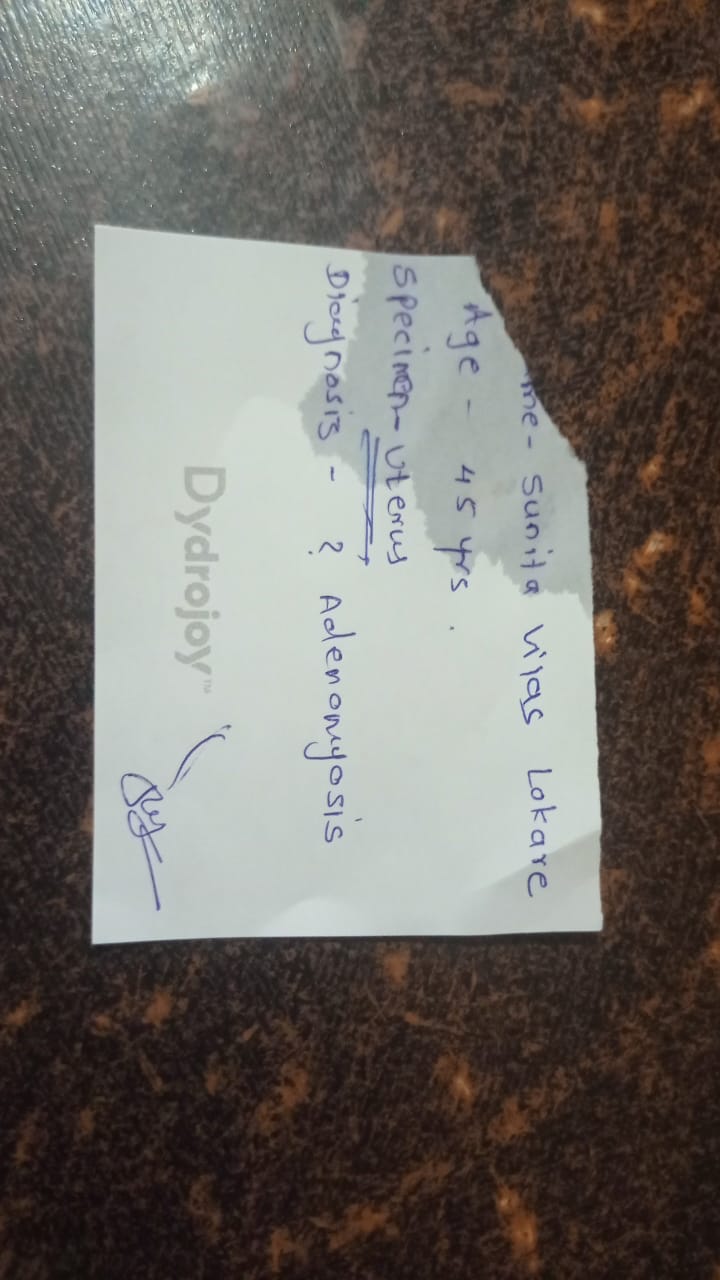 me- Sunita Vilas Lokare
Age - 45 yrs.
Specimen- Uterus
Diagnosis - ? Adenomyosis
Dydrojoy™